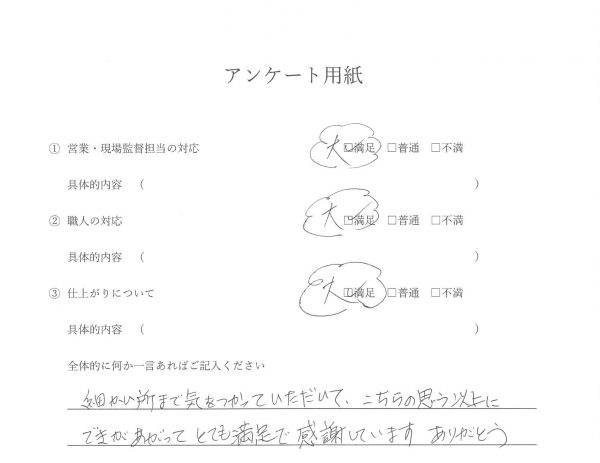 アンケート用紙
① 営業・現場監督担当の対応 大 ☑満足 □普通 □不満
具体的内容 ( )
② 職人の対応 大 ☑満足 □普通 □不満
具体的内容 ( )
③ 仕上がりについて 大 ☑満足 □普通 □不満
具体的内容 ( )
全体的に何か一言あればご記入ください
細かい所まで気をつかっていただいて、こちらの思う以上に
できがあがって とても満足で 感謝しています ありがとう